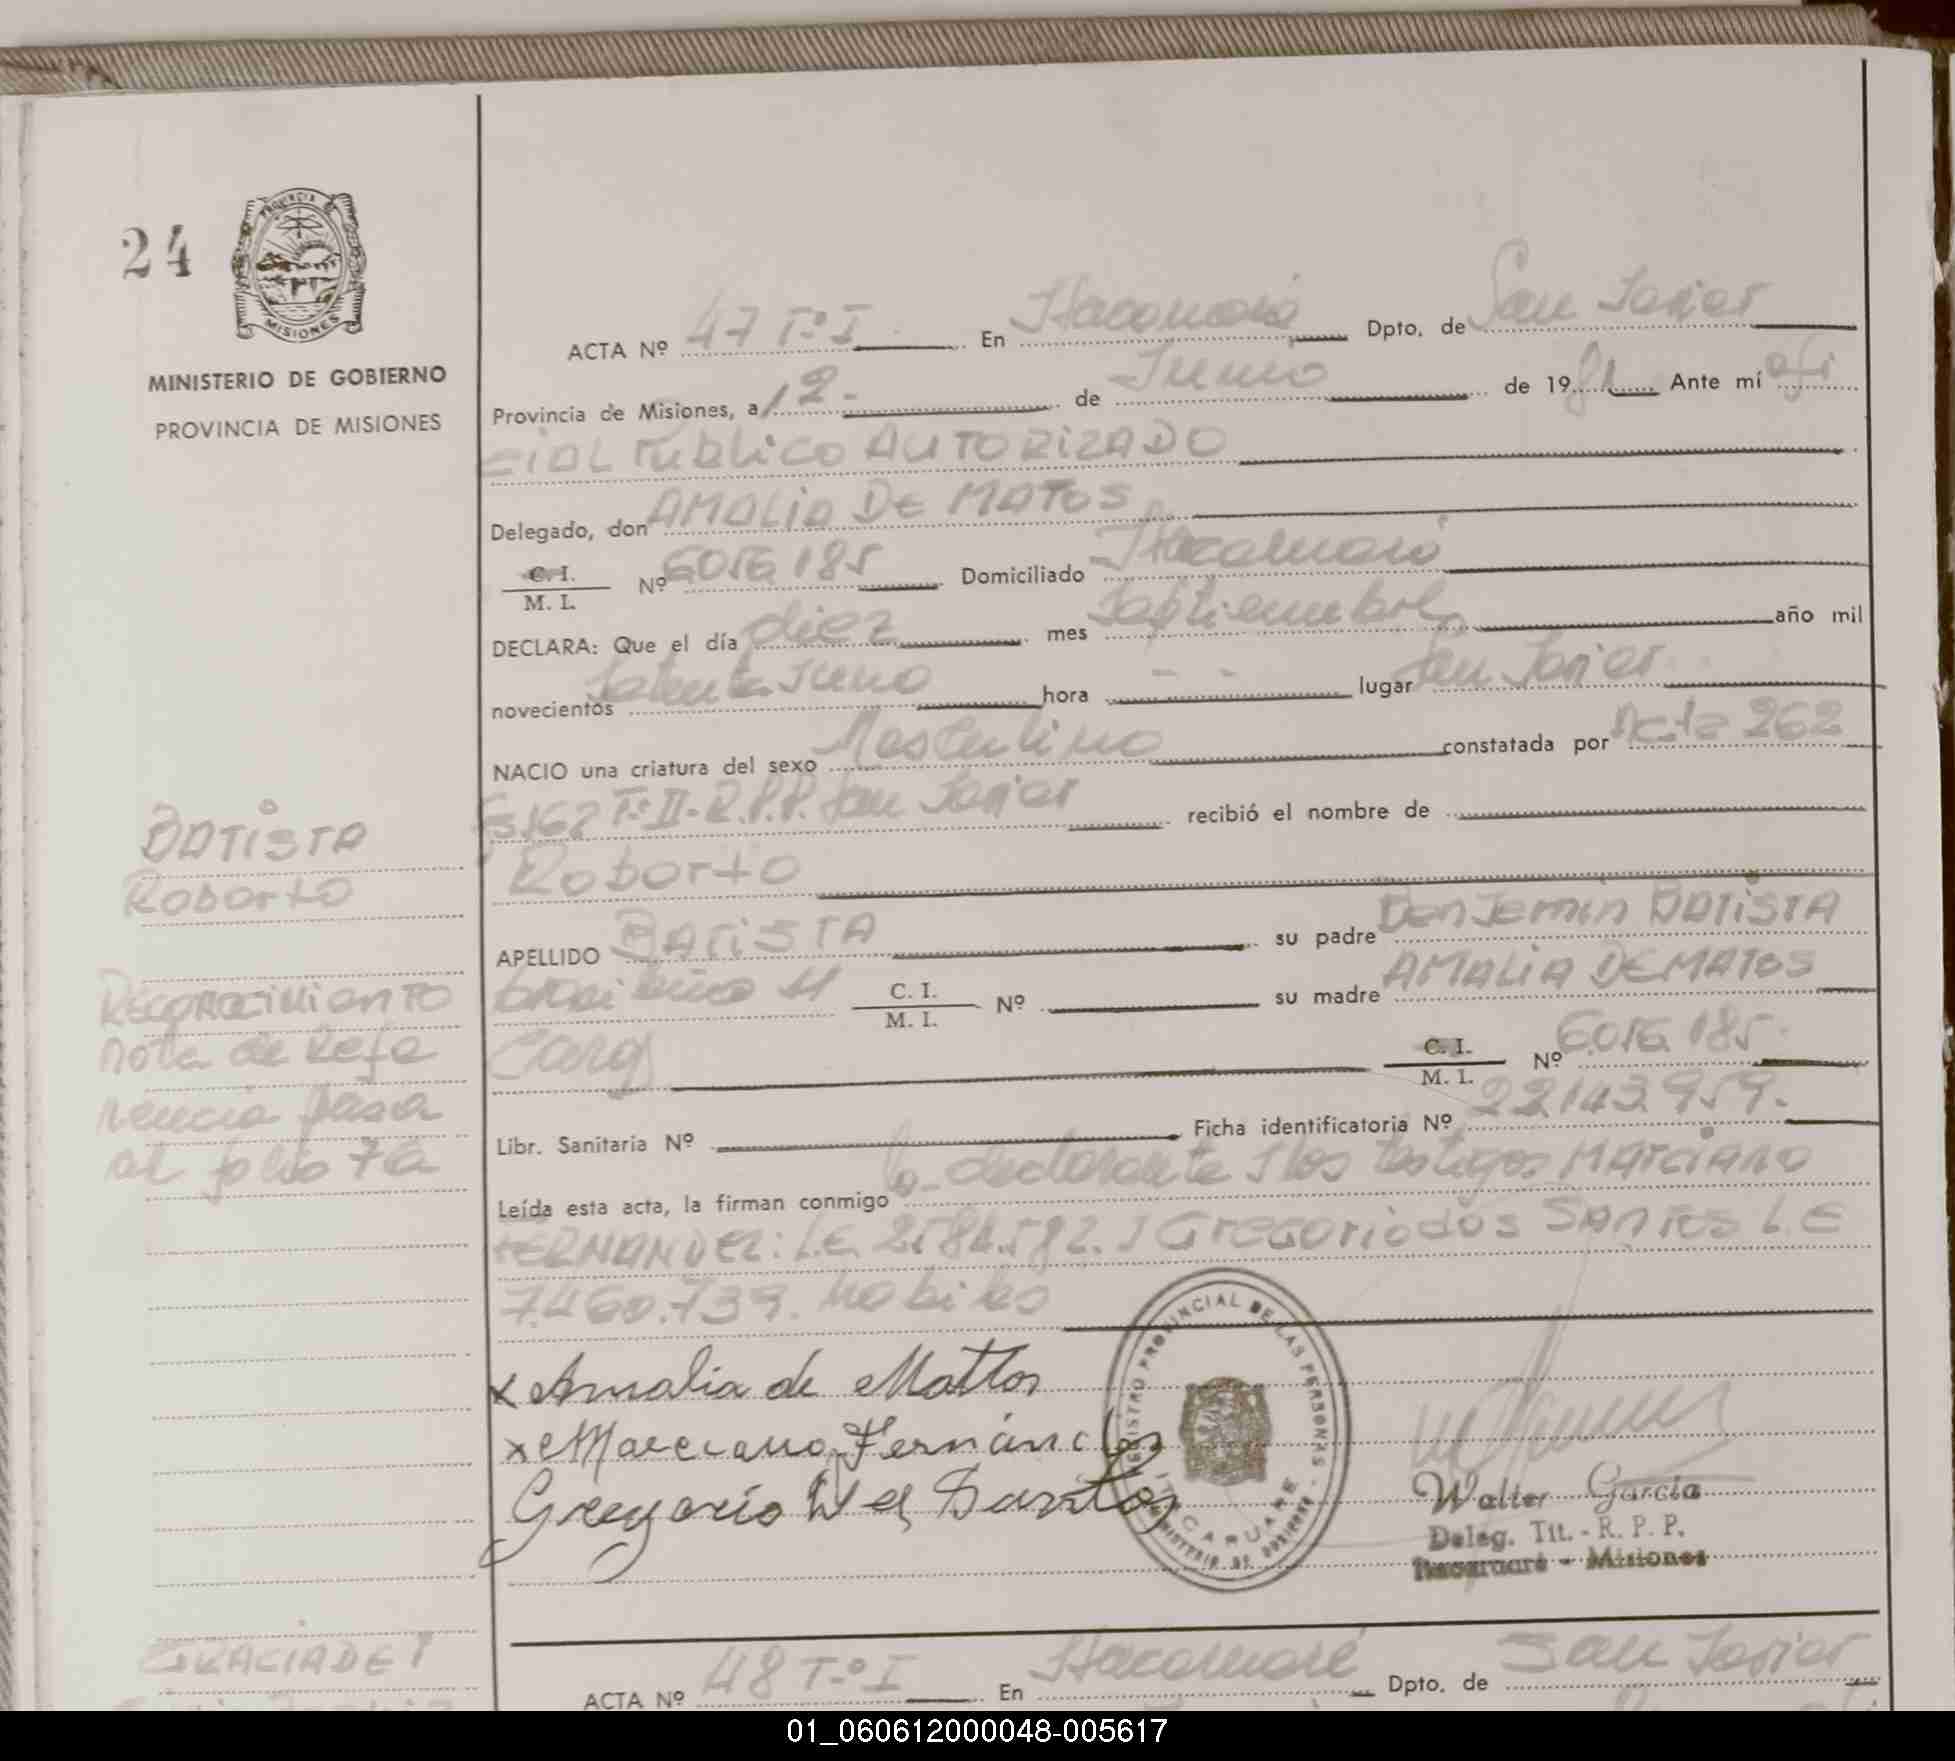 24
PROVINCIA DE
MISIONES
MINISTERIO DE GOBIERNO
PROVINCIA DE MISIONES
ACTA Nº 47 Tº I En Itacaruaré Dpto. de San Javier
Provincia de Misiones, a 12 - de Junio de 1981 Ante mí ofi
cial Publico AUTORIZADO
Delegado, don AMALIA DE MATOS
C. I. / M. I. Nº 6.056.185 Domiciliado Itacaruaré
DECLARA: Que el día diez mes Septiembre año mil
novecientos Setenta y uno hora - - lugar San Javier
NACIO una criatura del sexo Masculino constatada por Acta 262
Fº 162 Tº II - R.P.P. San Javier recibió el nombre de
Roberto
APELLIDO BATISTA su padre Benjamin BATISTA
brasilero C. I. / M. I. Nº su madre AMALIA DE MATOS
C. I. / M. I. Nº 6.056.185.
Libr. Sanitaria Nº Ficha identificatoria Nº 22.143.959.
Leída esta acta, la firman conmigo la declarante y los testigos MARCIANO
FERNANDEZ: L.E. 2.584.592. y Gregorio dos Santos L.E
7.460.739. habiles
BATISTA
Roberto
Reconocimiento
nota de Refe
rencia pasa
al folio 76
x Amalia de Mattos
x Marciano Fernández
Gregorio Dos Santos
REGISTRO PROVINCIAL DE LAS PERSONAS - MINISTERIO DE GOBIERNO
ITACARUARE
Walter García
Deleg. Tit. - R. P. P.
Itacaruaré - Misiones
ACTA Nº 48 Tº I En Itacaruaré Dpto. de San Javier
01_060612000048-005617